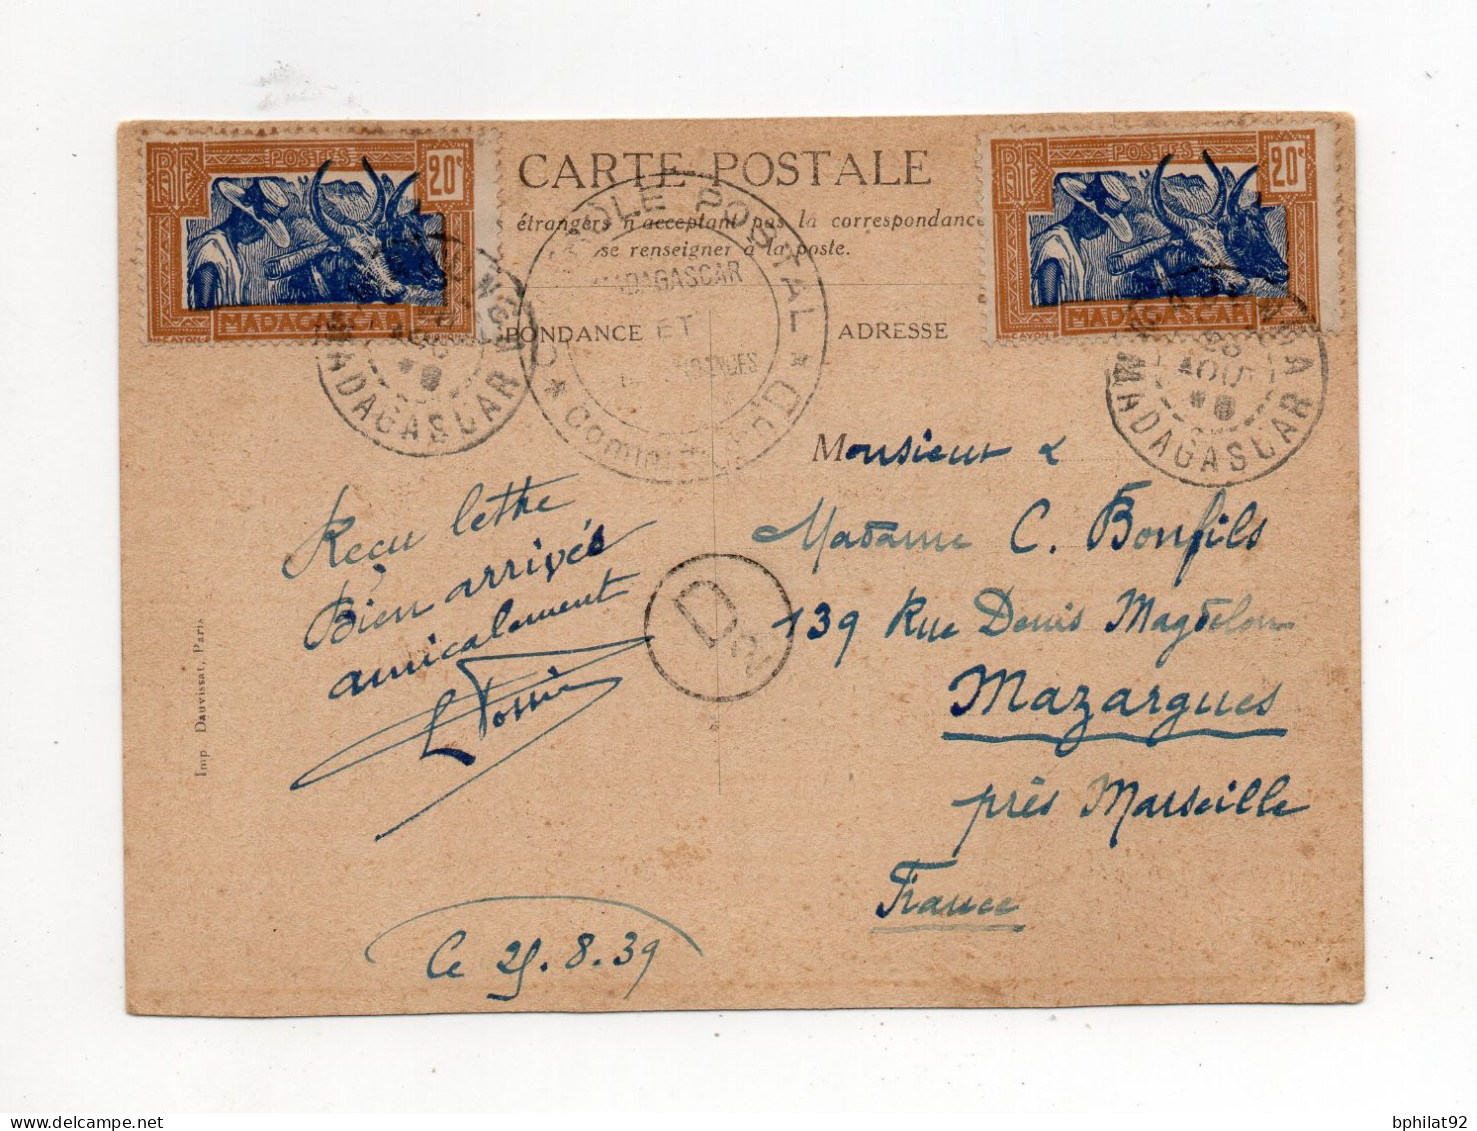 RF POSTES 20c
MADAGASCAR
CARTE POSTALE
étrangers n'acceptent pas la correspondance
se renseigner à la poste.
RF POSTES 20c
MADAGASCAR
PONDANCE
ADRESSE
CONTRÔLE POSTAL
MADAGASCAR
ET
MADAGASCAR
AOU
MADAGASCAR
Monsieur &
Madame C. Bonfils
139 Rue Denis Magdelon
Mazargues
près Marseille
France
Reçu lettre
Bien arrivés
amicalement
D
Ce 25.8.39
Imp Dauvissat, Paris
bphilat92